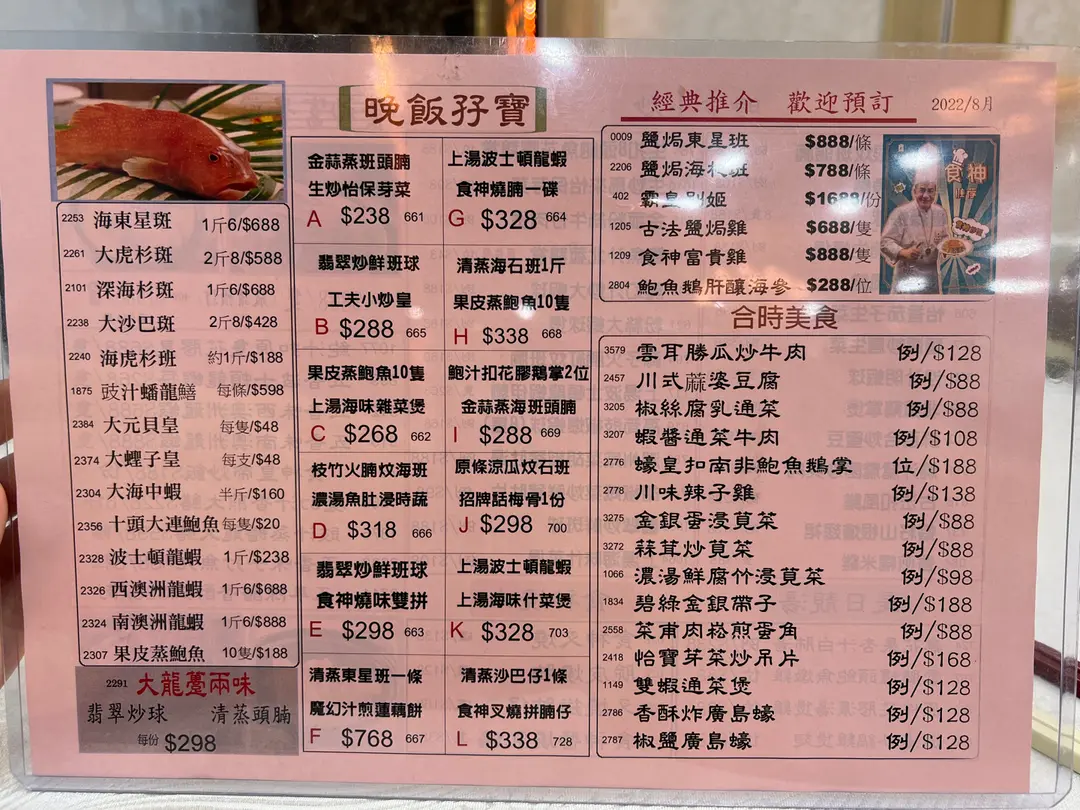 晚飯孖寶
經典推介 歡迎預訂 2022/8月
2253 海東星斑 1斤6/$688
2261 大虎杉斑 2斤8/$588
2101 深海杉斑 1斤6/$688
2238 大沙巴斑 2斤8/$428
2240 海虎杉斑 約1斤/$188
1875 豉汁蟠龍鱔 每條/$598
2384 大元貝皇 每隻/$48
2374 大蟶子皇 每支/$48
2304 大海中蝦 半斤/$160
2356 十頭大連鮑魚 每隻/$20
2328 波士頓龍蝦 1斤/$238
2326 西澳洲龍蝦 1斤6/$688
2324 南澳洲龍蝦 1斤6/$888
2307 果皮蒸鮑魚 10隻/$188
2291 大龍躉兩味
翡翠炒球 清蒸頭腩
每份 $298
金蒜蒸班頭腩
生炒怡保芽菜
A $238 661
翡翠炒鮮班球
工夫小炒皇
B $288 665
果皮蒸鮑魚10隻
上湯海味雜菜煲
C $268 662
枝竹火腩炆海班
濃湯魚肚浸時蔬
D $318 666
翡翠炒鮮班球
食神燒味雙拼
E $298 663
清蒸東星班一條
魔幻汁煎蓮藕餅
F $768 667
上湯波士頓龍蝦
食神燒腩一碟
G $328 664
清蒸海石班1斤
果皮蒸鮑魚10隻
H $338 668
鮑汁扣花膠鵝掌2位
金蒜蒸海班頭腩
I $288 669
原條涼瓜炆石班
招牌話梅骨1份
J $298 700
上湯波士頓龍蝦
上湯海味什菜煲
K $328 703
清蒸沙巴仔1條
食神叉燒拼腩仔
L $338 728
0009 鹽焗東星班 $888/條
2206 鹽焗海杉班 $788/條
402 霸皇別姬 $1688/份
1205 古法鹽焗雞 $688/隻
1209 食神富貴雞 $888/隻
2804 鮑魚鵝肝釀海參 $288/位
食神
推荐
合時美食
3579 雲耳勝瓜炒牛肉 例/$128
2457 川式蔴婆豆腐 例/$88
3205 椒絲腐乳通菜 例/$88
3207 蝦醬通菜牛肉 例/$108
2776 蠔皇扣南非鮑魚鵝掌 位/$188
2778 川味辣子雞 例/$138
3275 金銀蛋浸莧菜 例/$88
3272 蒜茸炒莧菜 例/$88
1066 濃湯鮮腐竹浸莧菜 例/$98
1834 碧綠金銀帶子 例/$188
2558 菜甫肉崧煎蛋角 例/$88
2418 怡寶芽菜炒吊片 例/$168
1149 雙蝦通菜煲 例/$128
2786 香酥炸廣島蠔 例/$128
2787 椒鹽廣島蠔 例/$128